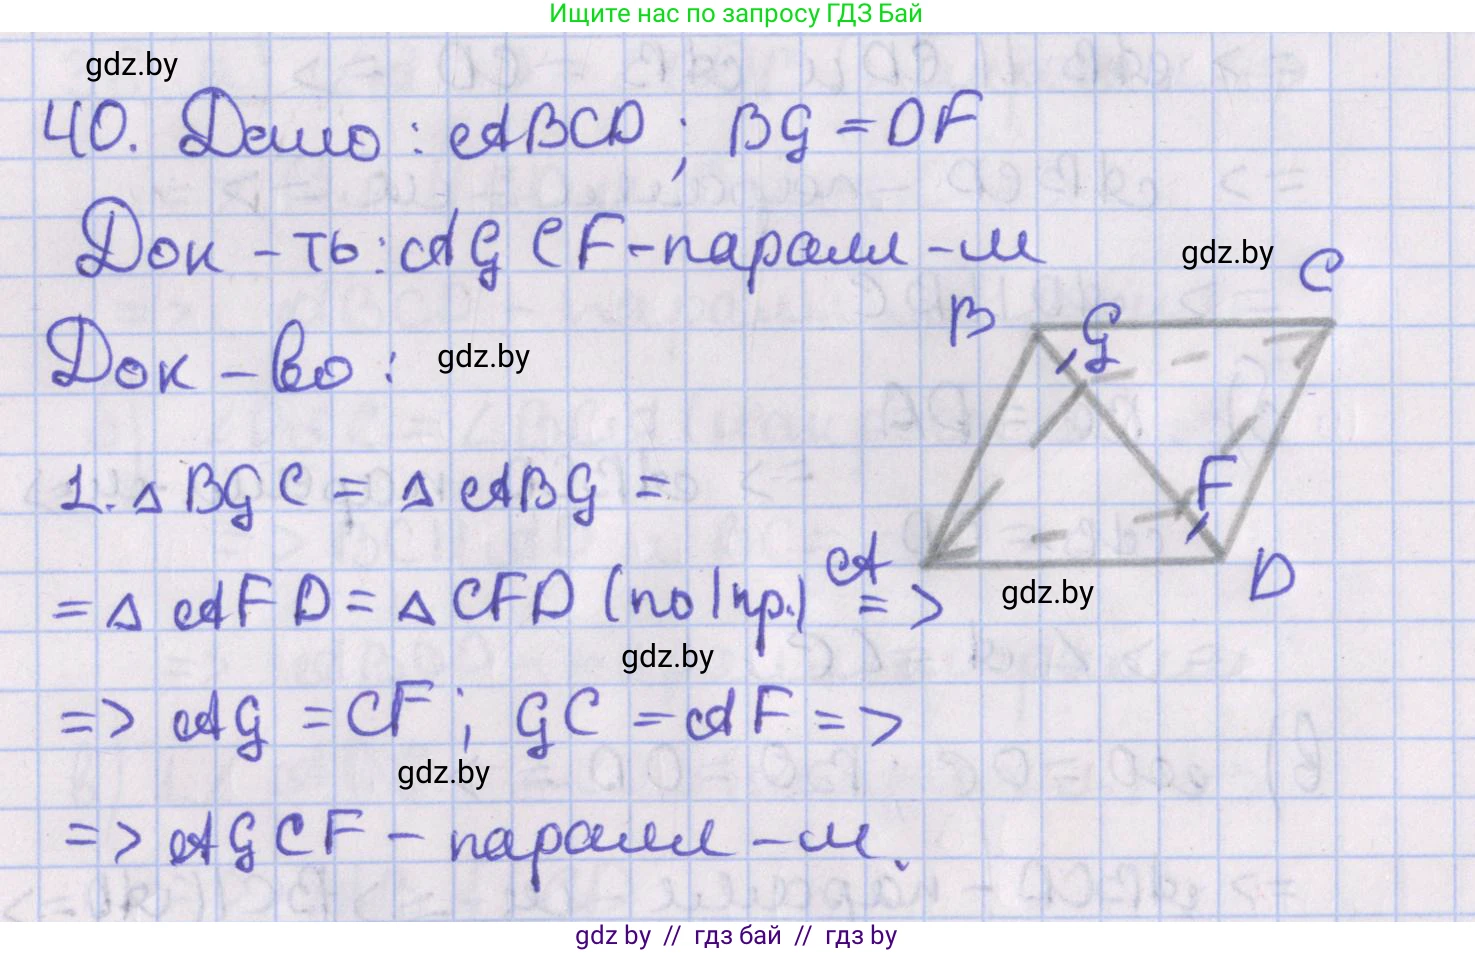 Ищите нас по запросу ГДЗ Бай
gdz.by
40. Дано: ABCD; BG = DF
Док-ть: AGCF-паралл-м
gdz.by
C
B
G
Док-во:
gdz.by
1. △BGC = △ABG =
F
A
D
= △AFD = △CFD (по 1 пр.) =>
gdz.by
gdz.by
=> AG = CF; GC = AF =>
gdz.by
=> AGCF - паралл-м.
gdz by // гдз бай // гдз by